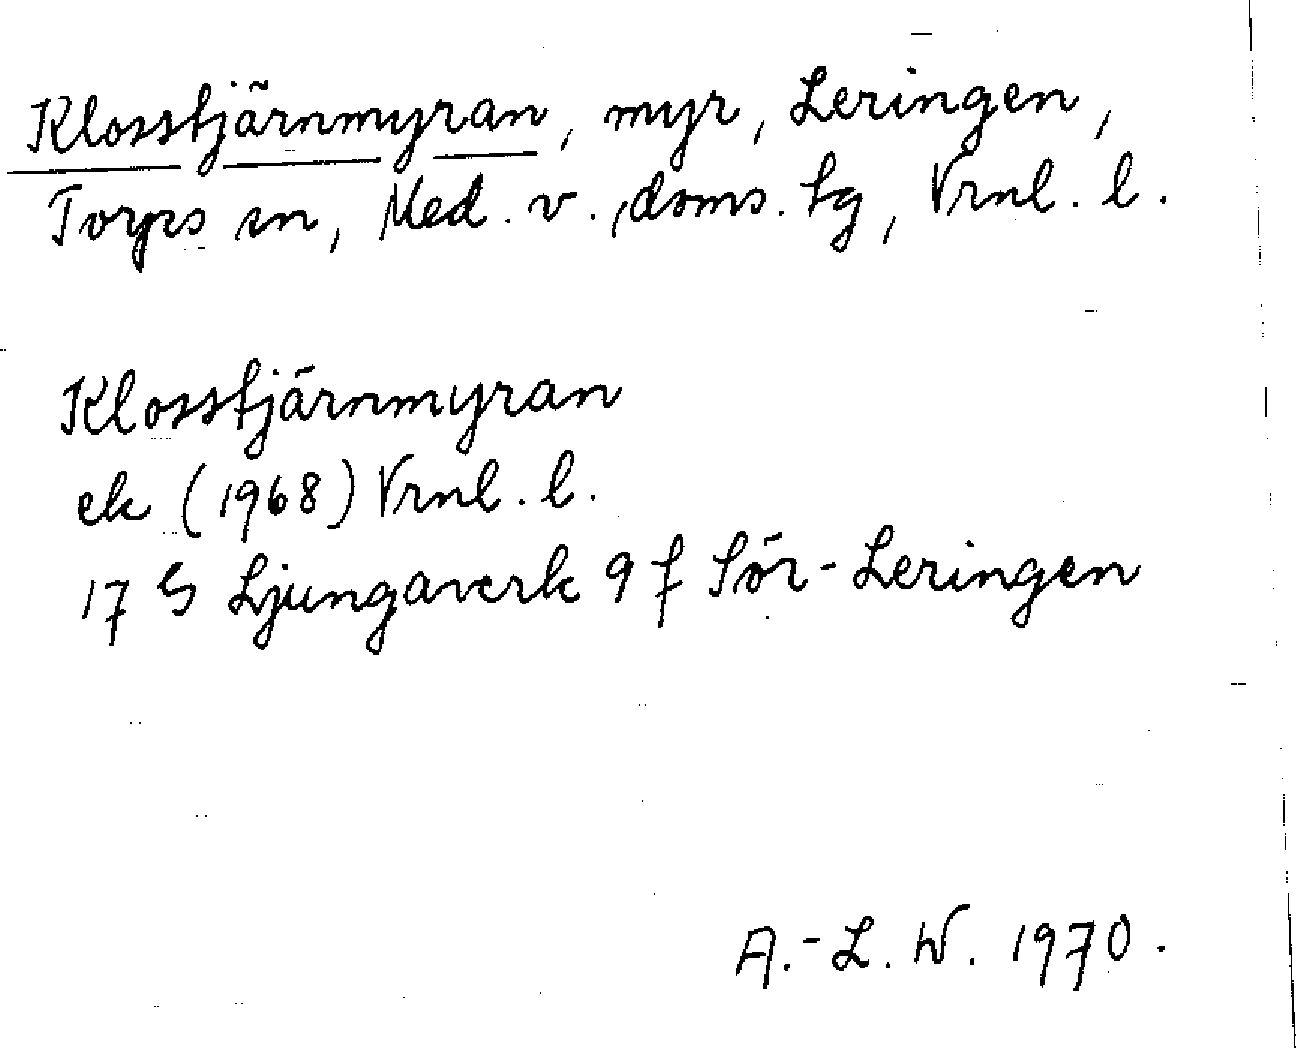 Klosstjärnmyran, myr, Leringen,
Torps sn, Med. v., doms. tg, Vrnl. l.
Klosstjärnmyran
ek (1968) Vrnl. l.
17 G Ljungaverk 9 f Sör-Leringen
A.-L. W. 1970.